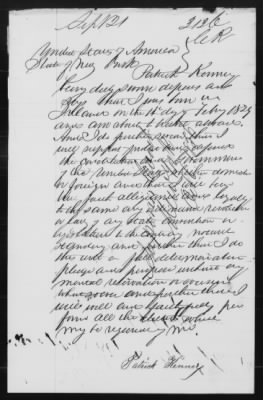 Sept 21 2126
United States of America
State of New York
Patrick Kenney
being duly sworn deposes and
says that I was born in
Ireland on the day of Feby 1829
and am about
And I do further swear that I
will support protect and defend
the constitution and Government
of the United States whether domestic
or foreign and that I will bear
true faith allegiance and loyalty
to the same any ordinance resolution
or law of any State convention or
legislature to the contrary notwith
standing and further that I do
this with a full determination
pledge and purpose without any
mental reservation or evasion
whatsoever and further that I
will well and faithfully per
form all the duties which
may be required of me
Patrick Kenney